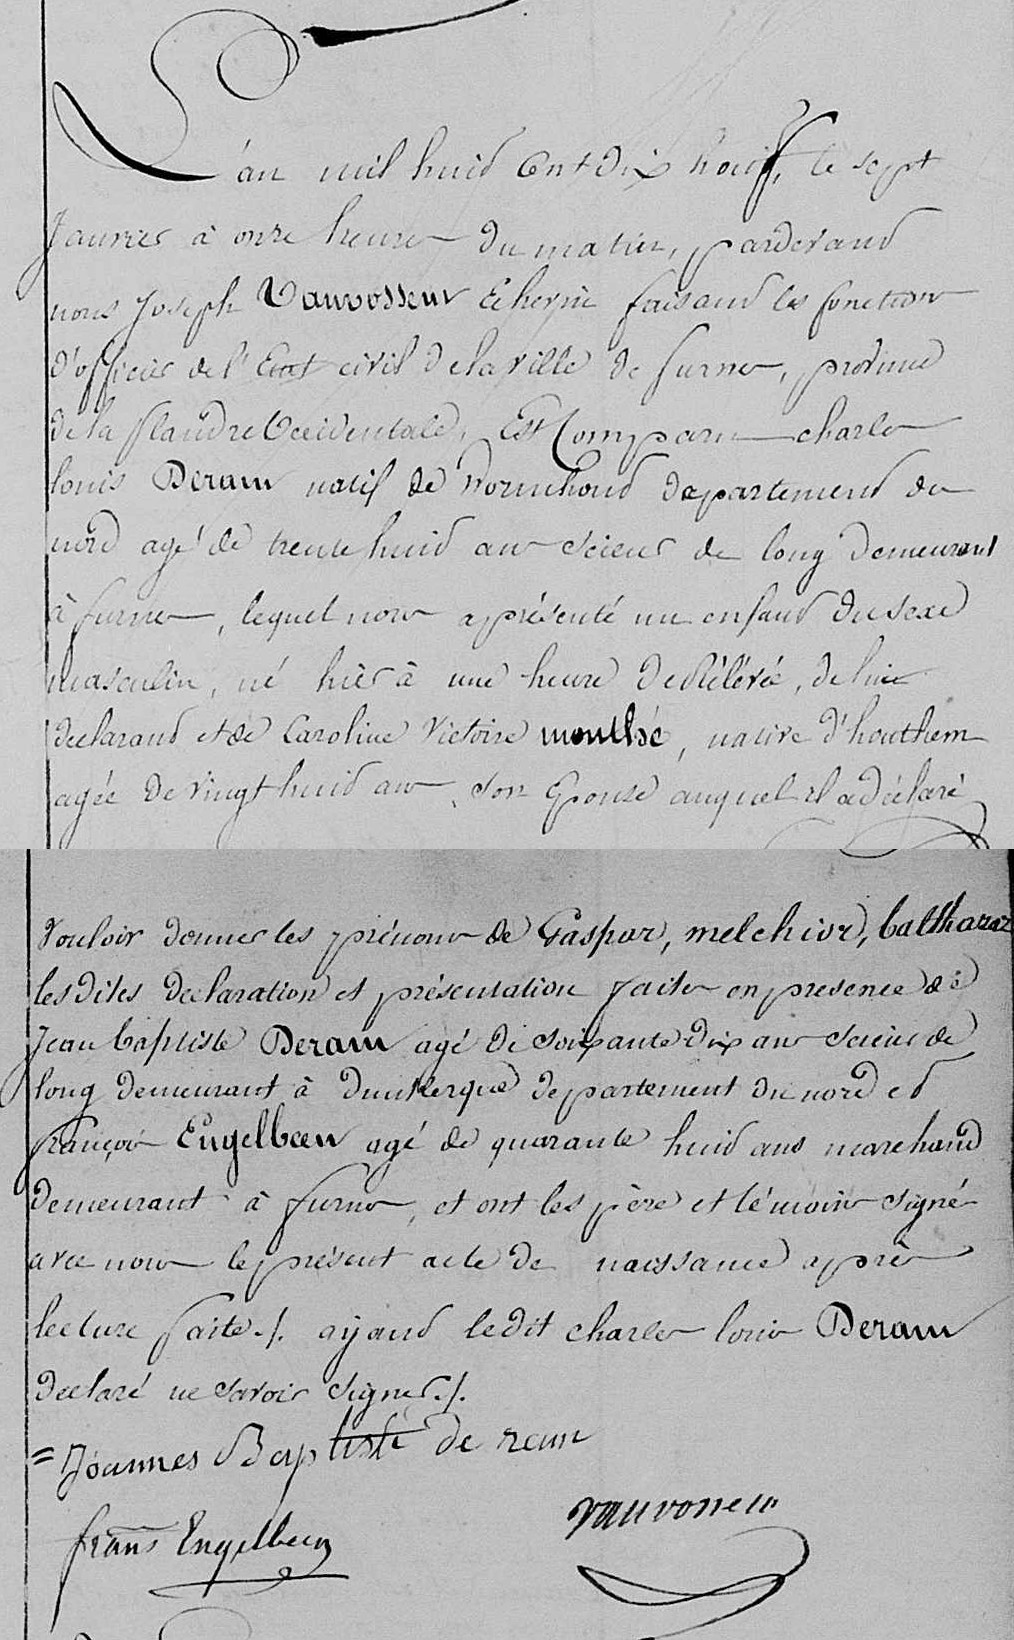 L'an mil huid Cent Dix houf, le sept
Janvier à onze heures du matin, pardevand
nous Joseph Vanvossem Echevin faisand les fonction
d'officier de l'Etat civil de la ville de furnes, province
de la flandre Occidentale, Est Comparu charles
louis Deram natif de Wormhoud departemend du
nord agé de trente huid ans scieur de long demeurant
à furnes, lequel nous a présenté un enfand du sexe
masculin, né hièr à une heure de Rélévée, de lui
declarand et de Caroline Victoire monthé, native d'houthem
agée de vingt huid ans, son Epouse auquel il a déclaré
Vouloir donner les prénoms de Gaspar, melchior, balthazar
les dites declaration et présentation faites en presence de
Jean baptiste Deram agé de soixante dix ans scieur de
long demeurant à dunkerque departement du nord ed
françois Engelbeen agé de quarante huid ans marchand
demeurant à furnes, et ont les père et témoins signé
avec nous le présent acte de naissance après
lecture faite./. ayand le dit charles louis Deram
declaré ne savoir signer./.
= Joannes Baptiste de ram
frans Engelbeen
Vanvossem